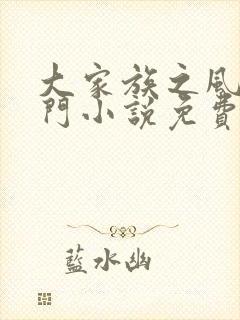 大家族之風
門小說免費
藍水幽